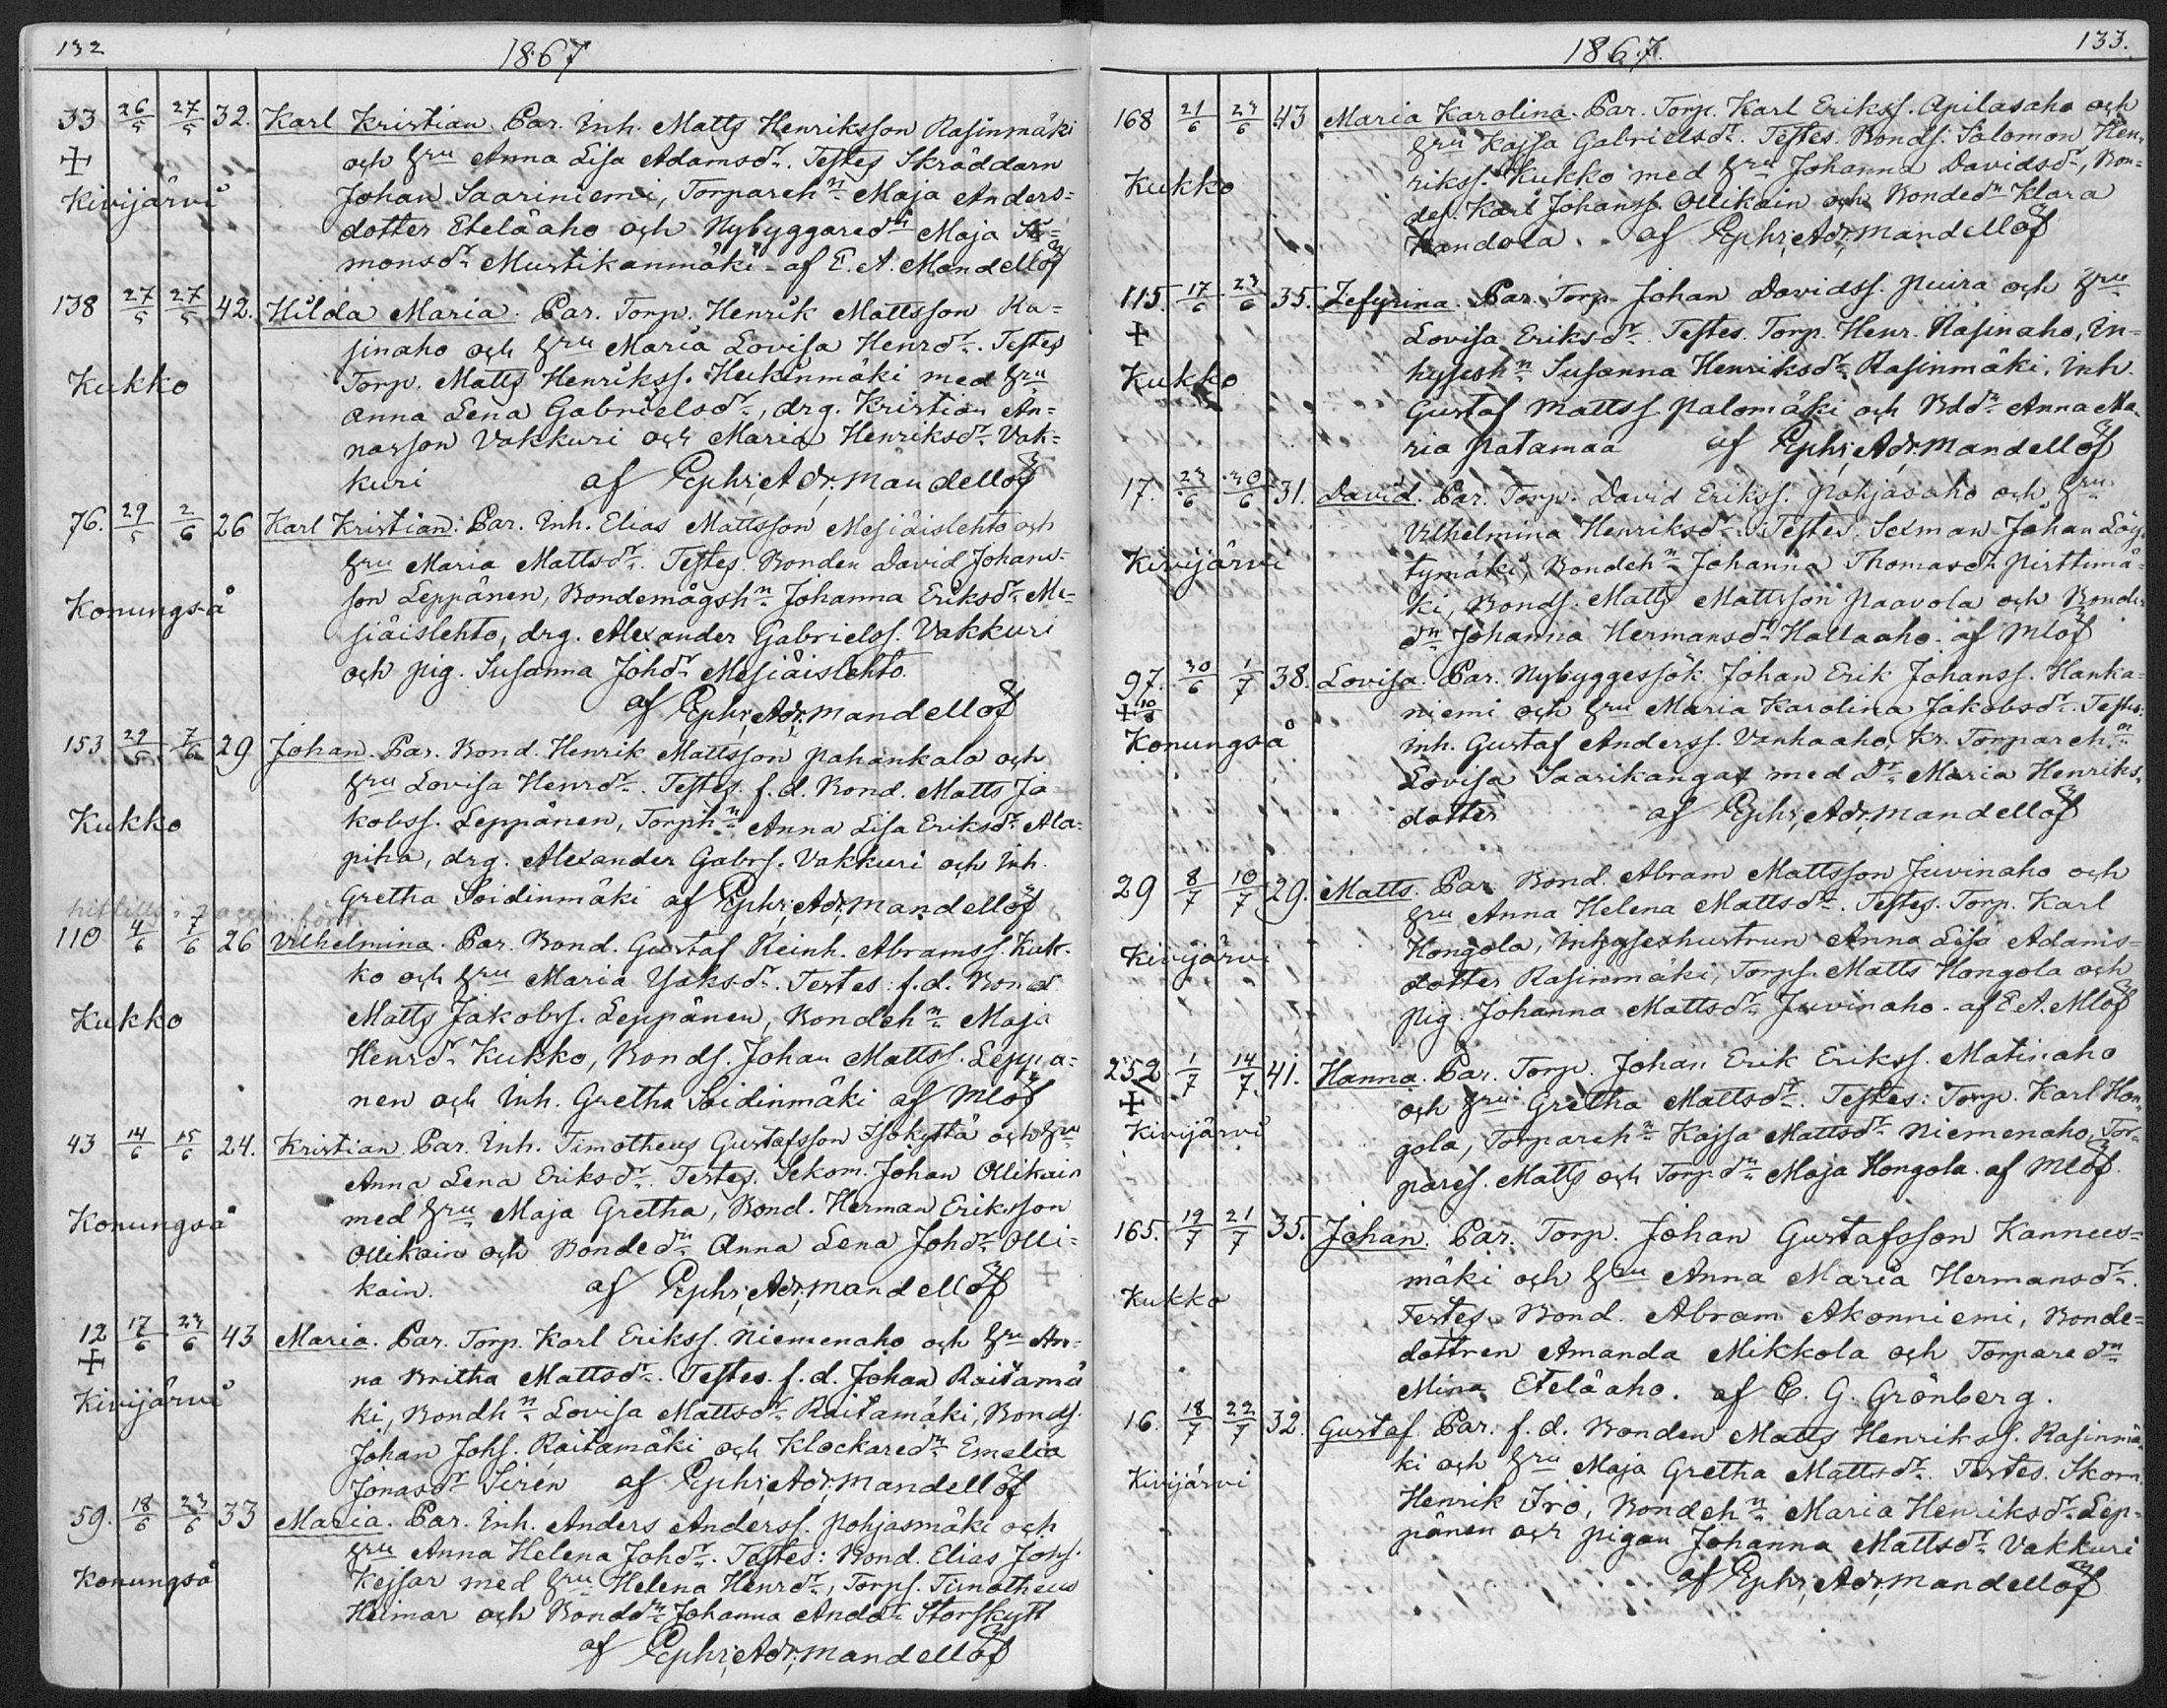 132
1867
33 26/5 27/5 32. Karl Kristian. Par. Inh. Matts Henriksson Rasinmäki
och hru Anna Lisa Adamsdr. Testes Skräddarn
Johan Saariniemi, Torpareh:n Maja Anders=
Kivijärvi
dotter Eteläaho och Nybyggaredn Maja Si=
monsdr Mustikanmäki - af E. A. Mandellöf
138 27/5 27/5 42. Hilda Maria. Par. Torp. Henrik Mattsson Ra=
sinaho och hru Maria Lovisa Henrdr. Testes
Kukko
Torp. Matts Henrikss. Heikinmäki med hru
Anna Lena Gabrielsdr, drg. Kristian An=
nasson Vakkuri och Maria Henriksdr Vak=
kuri af Ephr; Adr; Mandellöf
76. 29/5 2/6 26 Karl Kristian: Par. Inh. Elias Mattsson Mesiäislehto och
hru Maria Mattsdr. Testes. Bonden David Johans=
Konungså
son Leppänen, Bondemågsh:n Johanna Eriksdr Me=
siäislehto, drg. Alexander Gabrielss. Vakkuri
och pig. Susanna Johdr Mesiäislehto.
af Ephr; Adr; Mandellöf
153 29/5 7/6 29 Johan. Par. Bond. Henrik Mattsson Pahankala och
hru Lovisa Henrdr. Testes. f. d. Bond. Matts Ja
Kukko
kobss. Leppänen, Torph:n Anna Lisa Eriksdr Ala=
piha, drg. Alexander Gabrs. Vakkuri och Inh.
Gretha Soidinmäki af Ephr; Adr; Mandellöf
110 4/6 7/6 26 Vilhelmina. Par. Bond. Gustaf Reinh. Abramss. Kuk=
ko och hru Maria Isaksdr. Testes: f. d. Bond
Kukko
Matts Jakobss. Leppänen, Bondeh:n Maja
Henrdr Kukko, Bonds. Johan Mattss. Leppä=
nen och Inh. Gretha Soidinmäki af Mlöf
43 14/6 15/6 24. Kristian. Par. Inh. Timotheus Gustafsson Isokyttä och hru
Anna Lena Eriksdr. Testes. Sckom. Johan Ollikain
Konungså
med hru Maja Gretha, Bond. Herman Eriksson
Ollikain och Bondedn Anna Lena Johdr Olli=
kain. af Ephr; Adr; Mandellöf
12 17/6 23/6 43 Maria. Par. Torp. Karl Erikss. Niemenaho och hru An=
na Britha Mattsdr. Testes. f. d. Johan Raitamä
Kivijärvi
ki, Bondh:n Lovisa Mattsdr Raitamäki, Bonds.
Johan Johs. Raitamäki och Klockaredn Emelia
Jonasdr Sirén af Ephr; Adr; Mandellöf
59. 18/6 23/6 33 Maria. Par. Inh. Anders Anderss. Pohjasmäki och
hru Anna Helena Johdr. Testes: Bond. Elias Johs.
Konungså
Keisar med hru Helena Henrdr, Torps. Timotheus
Heimar och Bonddn Johanna Anddr Storskytt
af Ephr; Adr; Mandellöf
1867.
133.
168 21/6 23/6 43 Maria Karolina. Par. Torp. Karl Erikss. Apilasaho och
hru Kajsa Gabrielsdr. Testes. Bonds. Salomon Hen=
Kukko
rikss. Kukko med hru Johanna Davidsdr, Bon=
des. Karl Johanss. Ollikain och Bondedn Klara
Kandola. af Ephr; Adr; Mandellöf
115. 17/6 23/6 35. Zefyrina. Par. Torp. Johan Davidss. Puira och hru
Lovisa Eriksdr. Testes. Torp. Henr. Rasinaho, In=
Kukko
hysesh:n Susanna Henriksdr Rasinmäki, Inh.
Gustaf Mattss. Palomäki och Bddn Anna Ma=
ria Patamaa af Ephr; Adr; Mandellöf
17. 23/6 30/6 31. David. Par. Torp. David Erikss. Pohjasaho och hru
Vilhelmina Henriksdr. Testes. Sexman Johan Löy=
Kivijärvi
tymäki, Bondeh:n Johanna Thomasdr Pirttimä
ki, Bonds. Matts Mattsson Paavola och Bonde=
dn Johanna Hermansdr Hallaaho. af Mlöf
97. 30/6 1/7 38. Lovisa. Par. Nybyggessök. Johan Erik Johanss. Hanka=
10/8
niemi och hru Maria Karolina Jakobsdr. Testes:
Konungså
Inh. Gustaf Anderss. Vanhaaho, kr. Torpareh:n
Lovisa Saarikangas med Dr Maria Henriks=
dotter af Ephr; Adr; Mandellöf
29 8/7 10/7 29. Matts. Par. Bond. Abram Mattsson Juvinaho och
hru Anna Helena Mattsdr. Testes. Torp. Karl
Kivijärvi
Hongola, Inhyseshustrun Anna Lisa Adams=
dotter Rasinmäki, Torps. Matts Hongola och
Pig. Johanna Mattsdr Juvinaho. af E. A. Mlöf
252 1/7 14/7 41. Hanna. Par. Torp. Johan Erik Erikss. Matinaho
och hru Gretha Mattsdr. Testes: Torp. Karl Hon=
Kivijärvi
gola, Torpareh:n Kajsa Mattsdr Niemenaho, Tor=
pares. Matts och Torp.dn Maja Hongola. af Mlöf.
165. 19/7 21/7 35. Johan. Par. Torp. Johan Gustafsson Kannus=
mäki och hru Anna Maria Hermansdr.
Kukko
Testes. Bond. Abram Akonniemi, Bonde=
dottren Amanda Mikkola och Torparedn
Mina Eteläaho. af C. G. Grönberg.
16. 18/7 22/7 32. Gustaf. Par. f. d. Bonden Matts Henrikss. Rasinmä
ki och hru Maja Gretha Mattsdr. Testes. Skom.
Kivijärvi
Henrik Irö, Bondeh:n Maria Henriksdr Lep=
pänen och pigan Johanna Mattsdr Vakkuri
af Ephr; Adr; Mandellöf